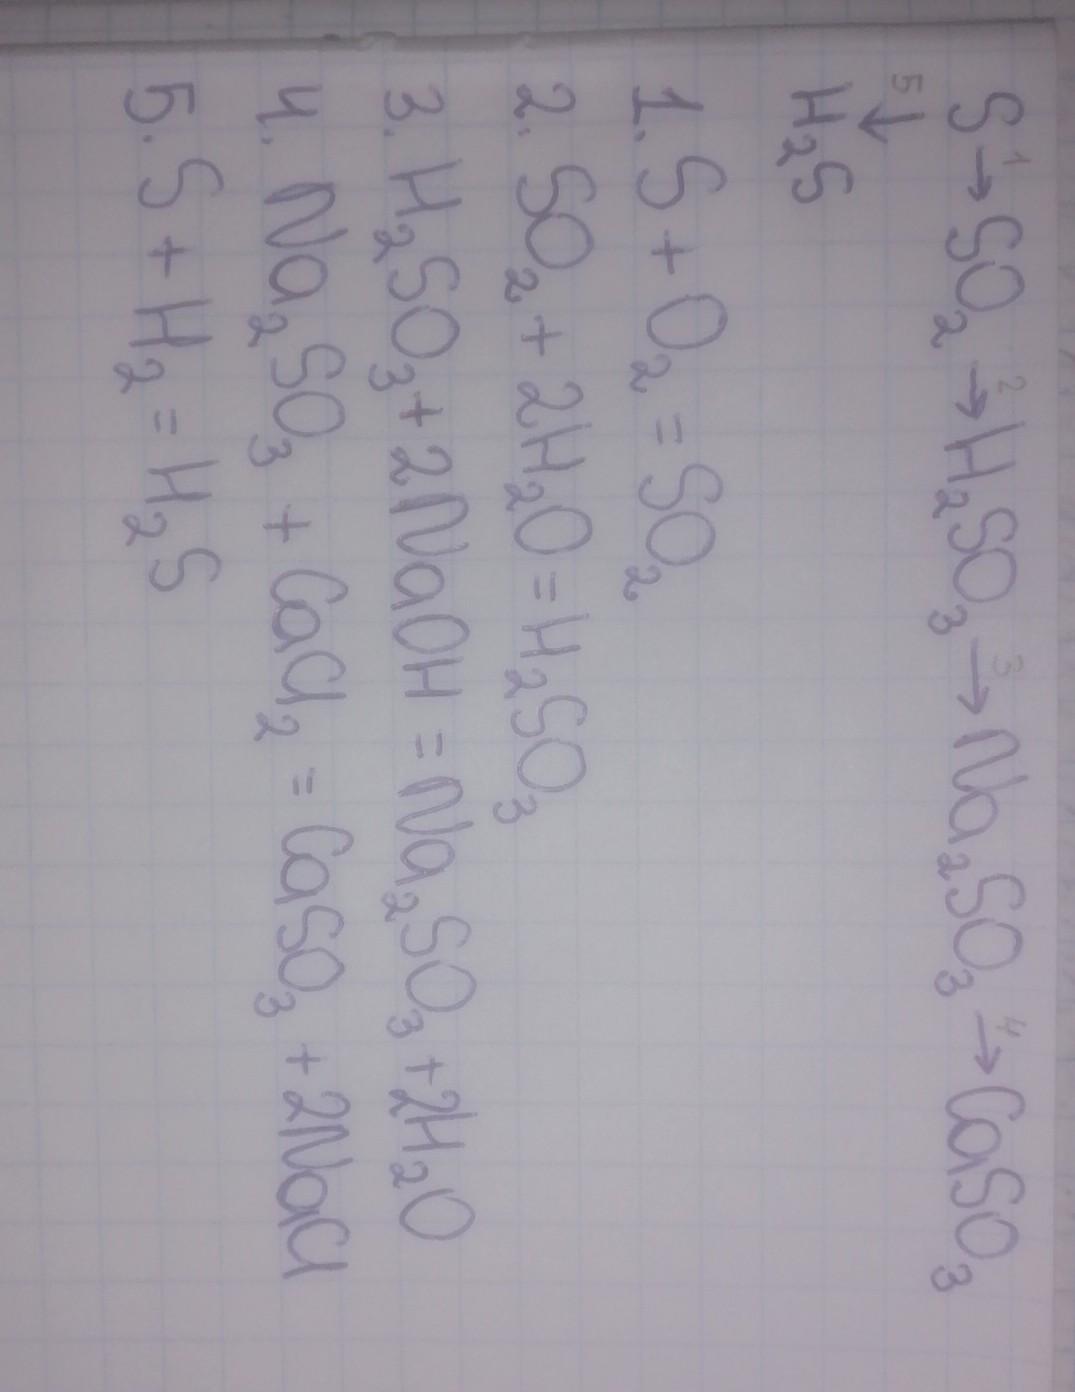 S →¹ SO₂ →² H₂SO₃ →³ Na₂SO₃ →⁴ CaSO₃
5 ↓
H₂S
1. S + O₂ = SO₂
2. SO₂ + 2H₂O = H₂SO₃
3. H₂SO₃ + 2NaOH = Na₂SO₃ + 2H₂O
4. Na₂SO₃ + CaCl₂ = CaSO₃ + 2NaCl
5. S + H₂ = H₂S